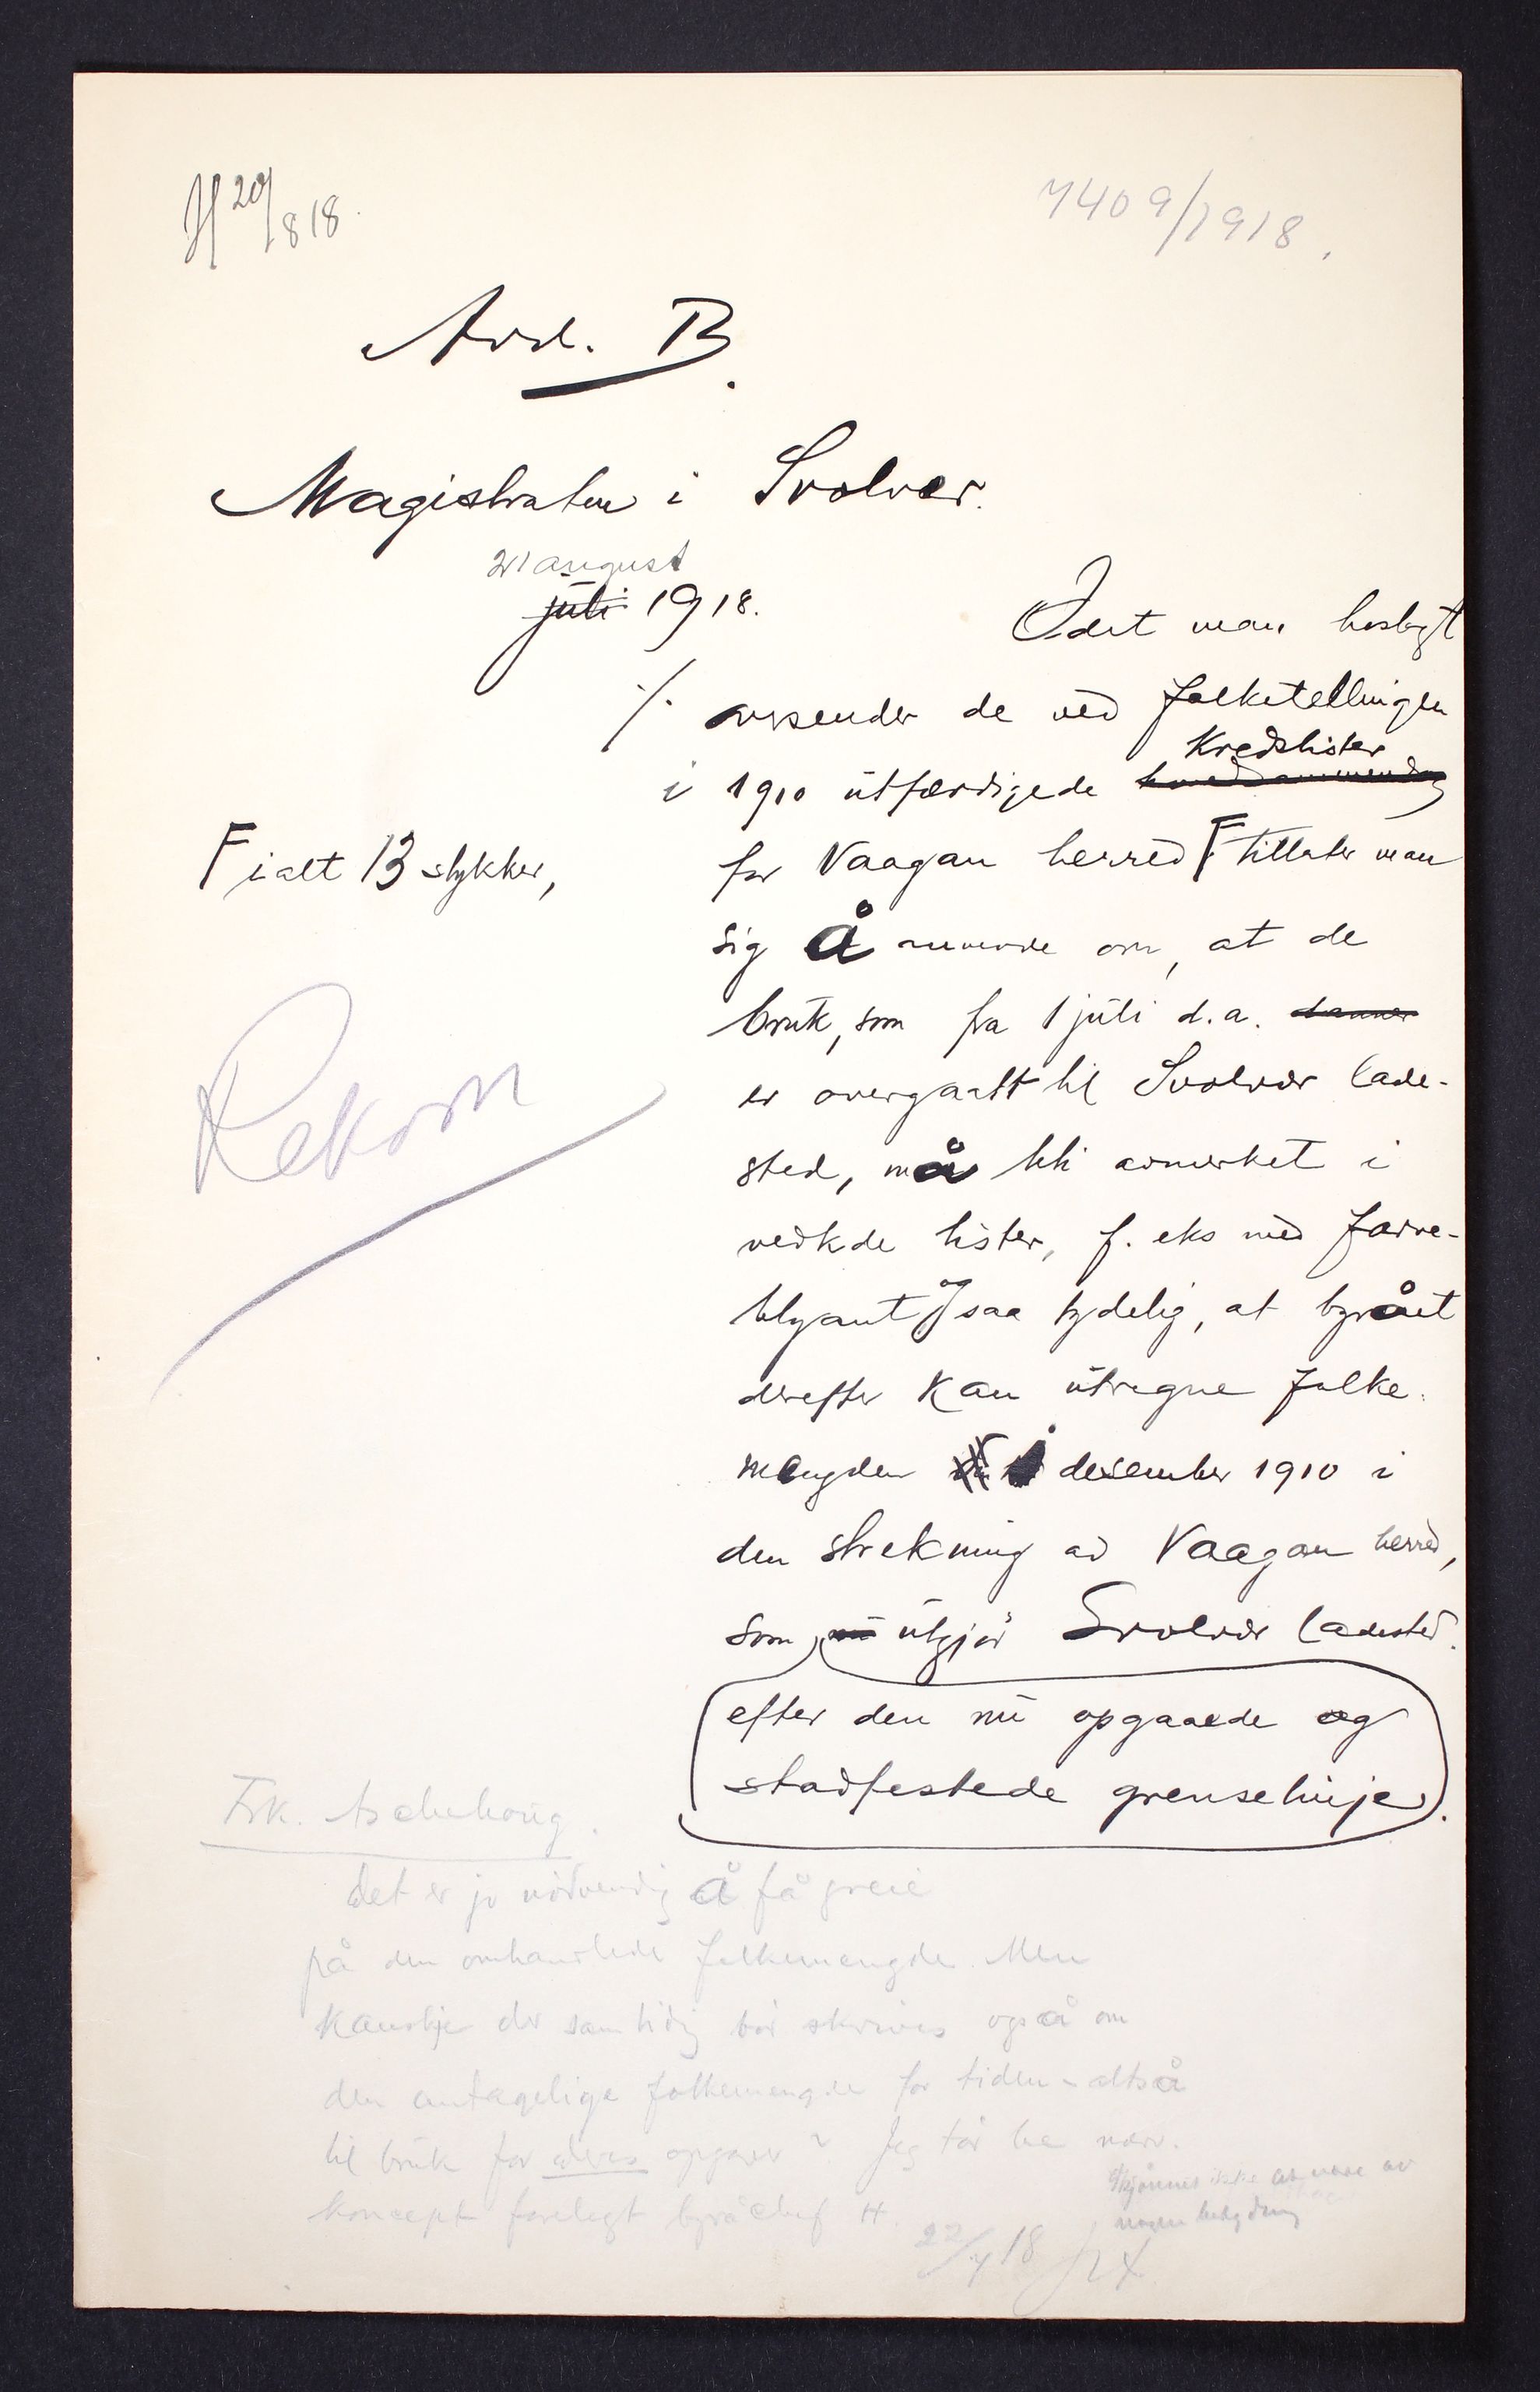 H 20/8 18.
7409/1918.
Avd. B.
Magistraten i Svolvær.
21 august
juli 1918.
Idet man hoslagt
./. oversender de ved folketellingen
Kredslister
i 1910 utfærdigede
for Vaagan herred F tillater man
F ialt 13 stykker,
sig å anmode om, at de
bruk, som fra 1 juli d.a. danner
er overgaatt til Svolvær lade-
sted, må bli avmerket i
vedkde lister, f. eks med farve-
blyant og saa tydelig, at byrået
derefter kan utregne folke-
mengden 1 desember 1910 i
den strekning av Vaagan herred,
som nu utgjør Svolvær ladested.
efter den nu opgaaede og
stadfestede grenselinje.
Rekom
Frk. Aschehoug.
Det er jo nødvendig å få greie
på den omhandlede folkemengde. Men
kanskje der samtidig bør skrives også om
den antagelige folkemengde for tiden - altså
til bruk for deres opgaver? Jeg tør be nærv.
koncept forelagt byråchef H.
skjønnes ikke at være av
nogen betydning
22/7 18